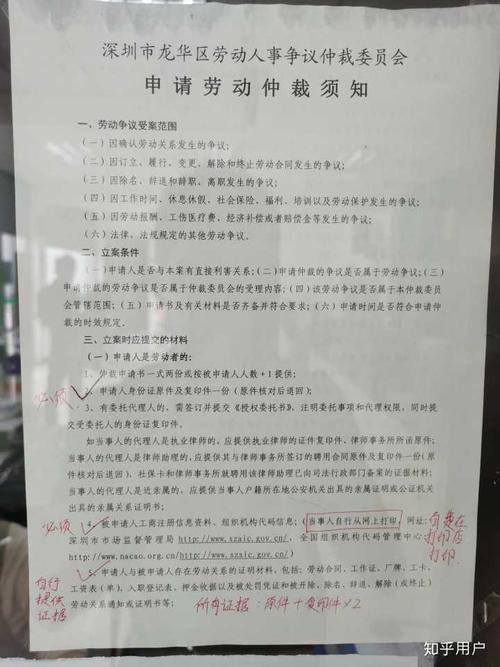 深圳市龙华区劳动人事争议仲裁委员会
申请劳动仲裁须知
一、劳动争议受案范围
（一）因确认劳动关系发生的争议;
（二）因订立、履行、变更、解除和终止劳动合同发生的争议;
（三）因除名、辞退和辞职、离职发生的争议;
（四）因工作时间、休息休假、社会保险、福利、培训以及劳动保护发生的争议;
（五）因劳动报酬、工伤医疗费、经济补偿或者赔偿金等发生的争议;
（六）法律、法规规定的其他劳动争议。
二、立案条件
（一）申请人是否与本案有直接利害关系;（二）申请仲裁的争议是否属于劳动争议;（三）
申请仲裁的争议是否属于仲裁委员会的受理内容;（四）该劳动争议是否属于本仲裁委员
会管辖范围;（五）申请书及有关材料是否齐备并符合要求;（六）申请时间是否符合申请仲
裁的时效规定。
三、立案时应提交的材料
（一）申请人是劳动者的:
1、仲裁申请书一式两份或按被申请人人数+1提供;
必须 2、申请人身份证原件及复印件一份（原件核对后退回）;
3、有委托代理人的，需签订并提交《授权委托书》，注明委托事项和代理权限，同时提
交受委托人的身份证复印件。
如当事人的代理人是执业律师的，应提供执业律师的证件复印件、律师事务所所函原件;
当事人的代理人是律师助理的，应提供其与律师事务所签订的聘用合同原件及复印件一份(原
件核对后退回)、社保卡和律师事务所就聘用该律师助理已向司法行政部门备案的证据材料;
当事人的代理人是近亲属的，应提供当事人户籍所在地公安机关出具的亲属证明或公证机关
出具的亲属关系证明书;
必须 4、被申请人工商注册信息资料、组织机构代码信息:(当事人自行从网上打印，网址:
深圳市市场监督管理局http://www.szaic.gov.cn/，全国组织机构代码管理中心:
http://www.nacao.org.cn/http://www.szaic.gov.cn/)
自我在
打印店
打印.
5、申请人与被申请人存在劳动关系的证明材料，包括:劳动合同、工作证、厂牌、工卡、
工资表(单)、入职登记表、押金收据以及被处罚凭证和被开除、除名、辞退、解除(或终止)
劳动关系通知或证明书等;
自行
提供
证据
所有证据：原件+复印件×2
知乎用户